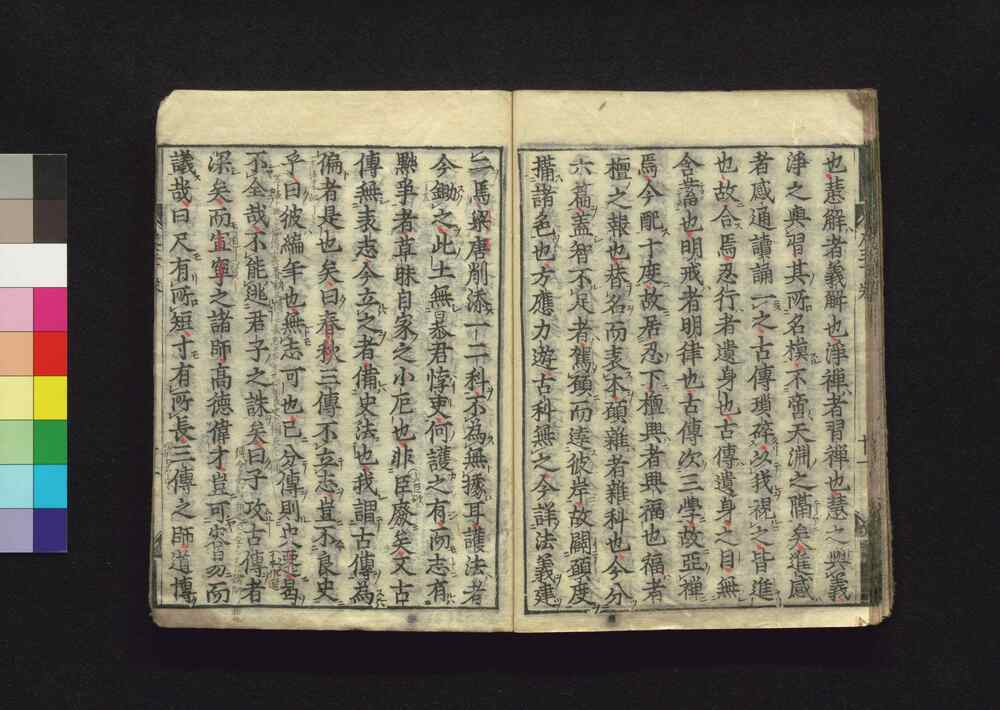 也慧解者義解也淨禪者習禪也慧之與義
淨之與習其所名摸不啻天淵之隔矣進感
者感通讀誦一之古傳瑣碎以我視之皆進
也故合焉忍行者遺身也古傳遺身之目無
含蓄也明戒者明律也古傳次三學故亞禪
焉今配十度故居忍下檀興者興福也福者
檀之報也替名而表本願雜者雜科也今分
六篇蓋智不足者駕願而逹彼岸故闢願度
攝諸色也方應力遊古科無之今詳法義建
二焉梁唐削添一十二科不為無據耳護法者
今鋤之此土無暴君悖吏何護之有而志有
點乎者草昧自家之小卮也非臣廢矣又古
傳無表志今立之者備史法也我謂古傳為
偏者是也矣曰春秋三傳不立志豈不良史
乎曰彼編年也無志可也已分傳則史漢曷
不全哉不能逃君子之誅矣曰子攻古傳者
深矣而宣寧之諸師高德偉才豈可容易而
議哉曰尺有所短寸有所長三傳之師道博